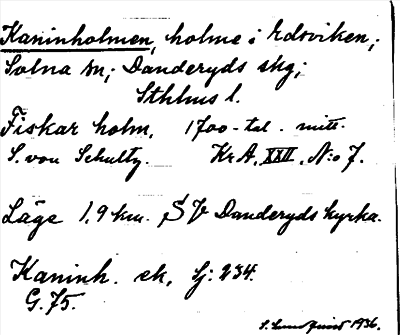 Kaninholmen, holme i Edsviken;
Solna sn; Danderyds skg;
Sthlms l.
Fiskar holm, 1700-tal. mitt.
S. von Schultz. Kr A, XXII, N:o 7.
Läge 1,9 km. SV Danderyds kyrka.
Kaninh. ek, bj: 234.
G. 75.
S. Lundquist 1936.